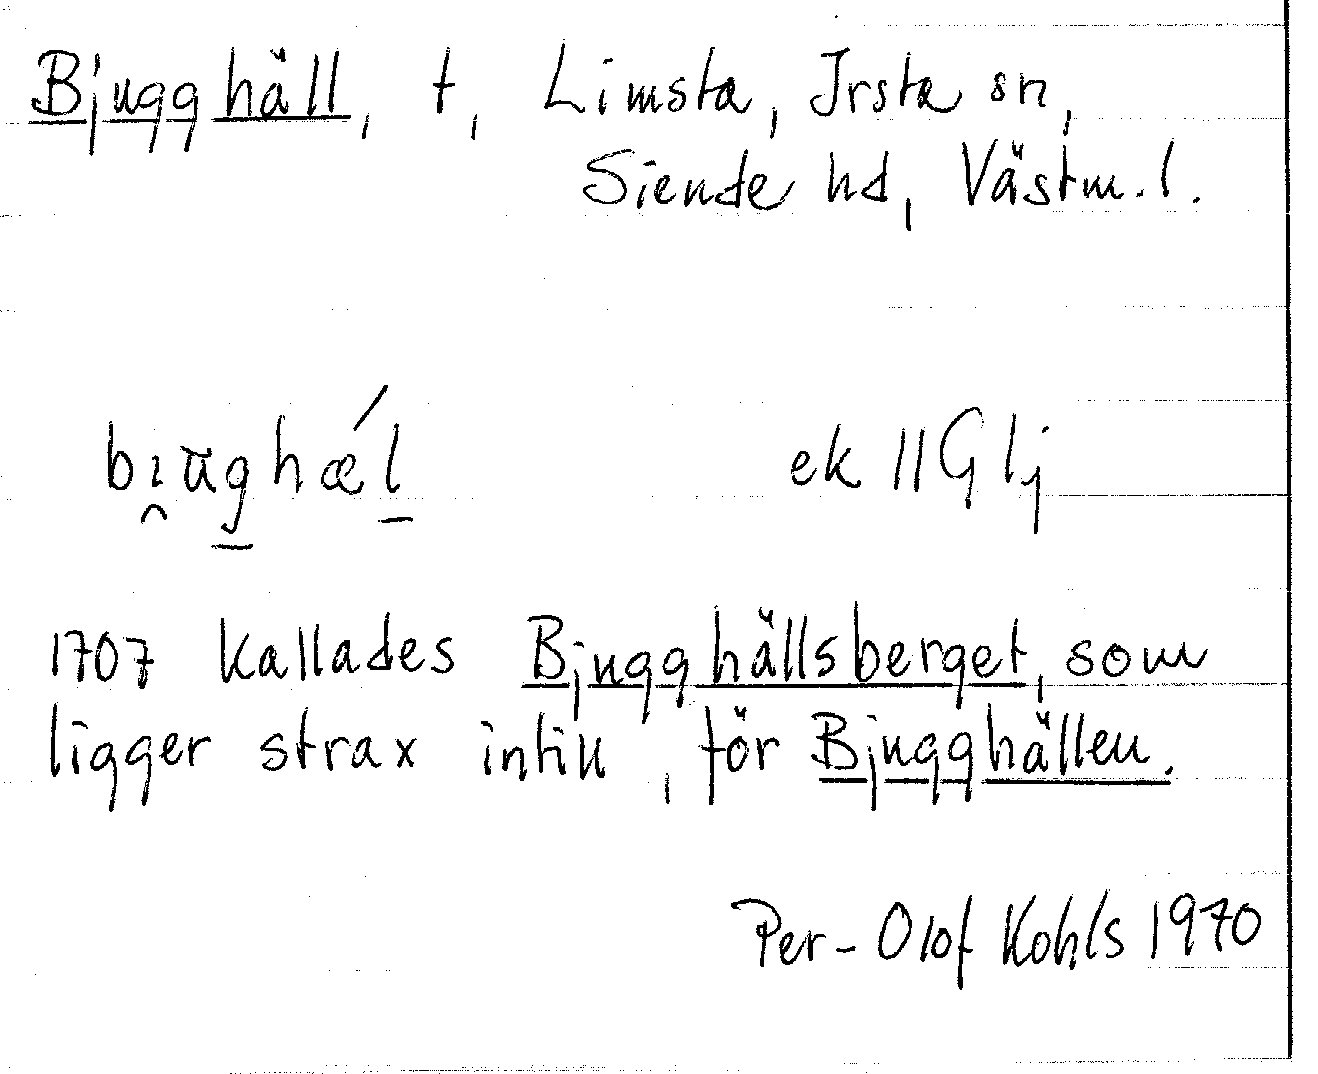 Bjugghäll, t, Limsta, Irsta sn,
Siende hd, Västm. l.
bı̯ūg̱hǽḻ ek 11G 1j
1707 kallades Bjugghällsberget, som
ligger strax intill, för Bjugghällen.
Per-Olof Kohls 1970